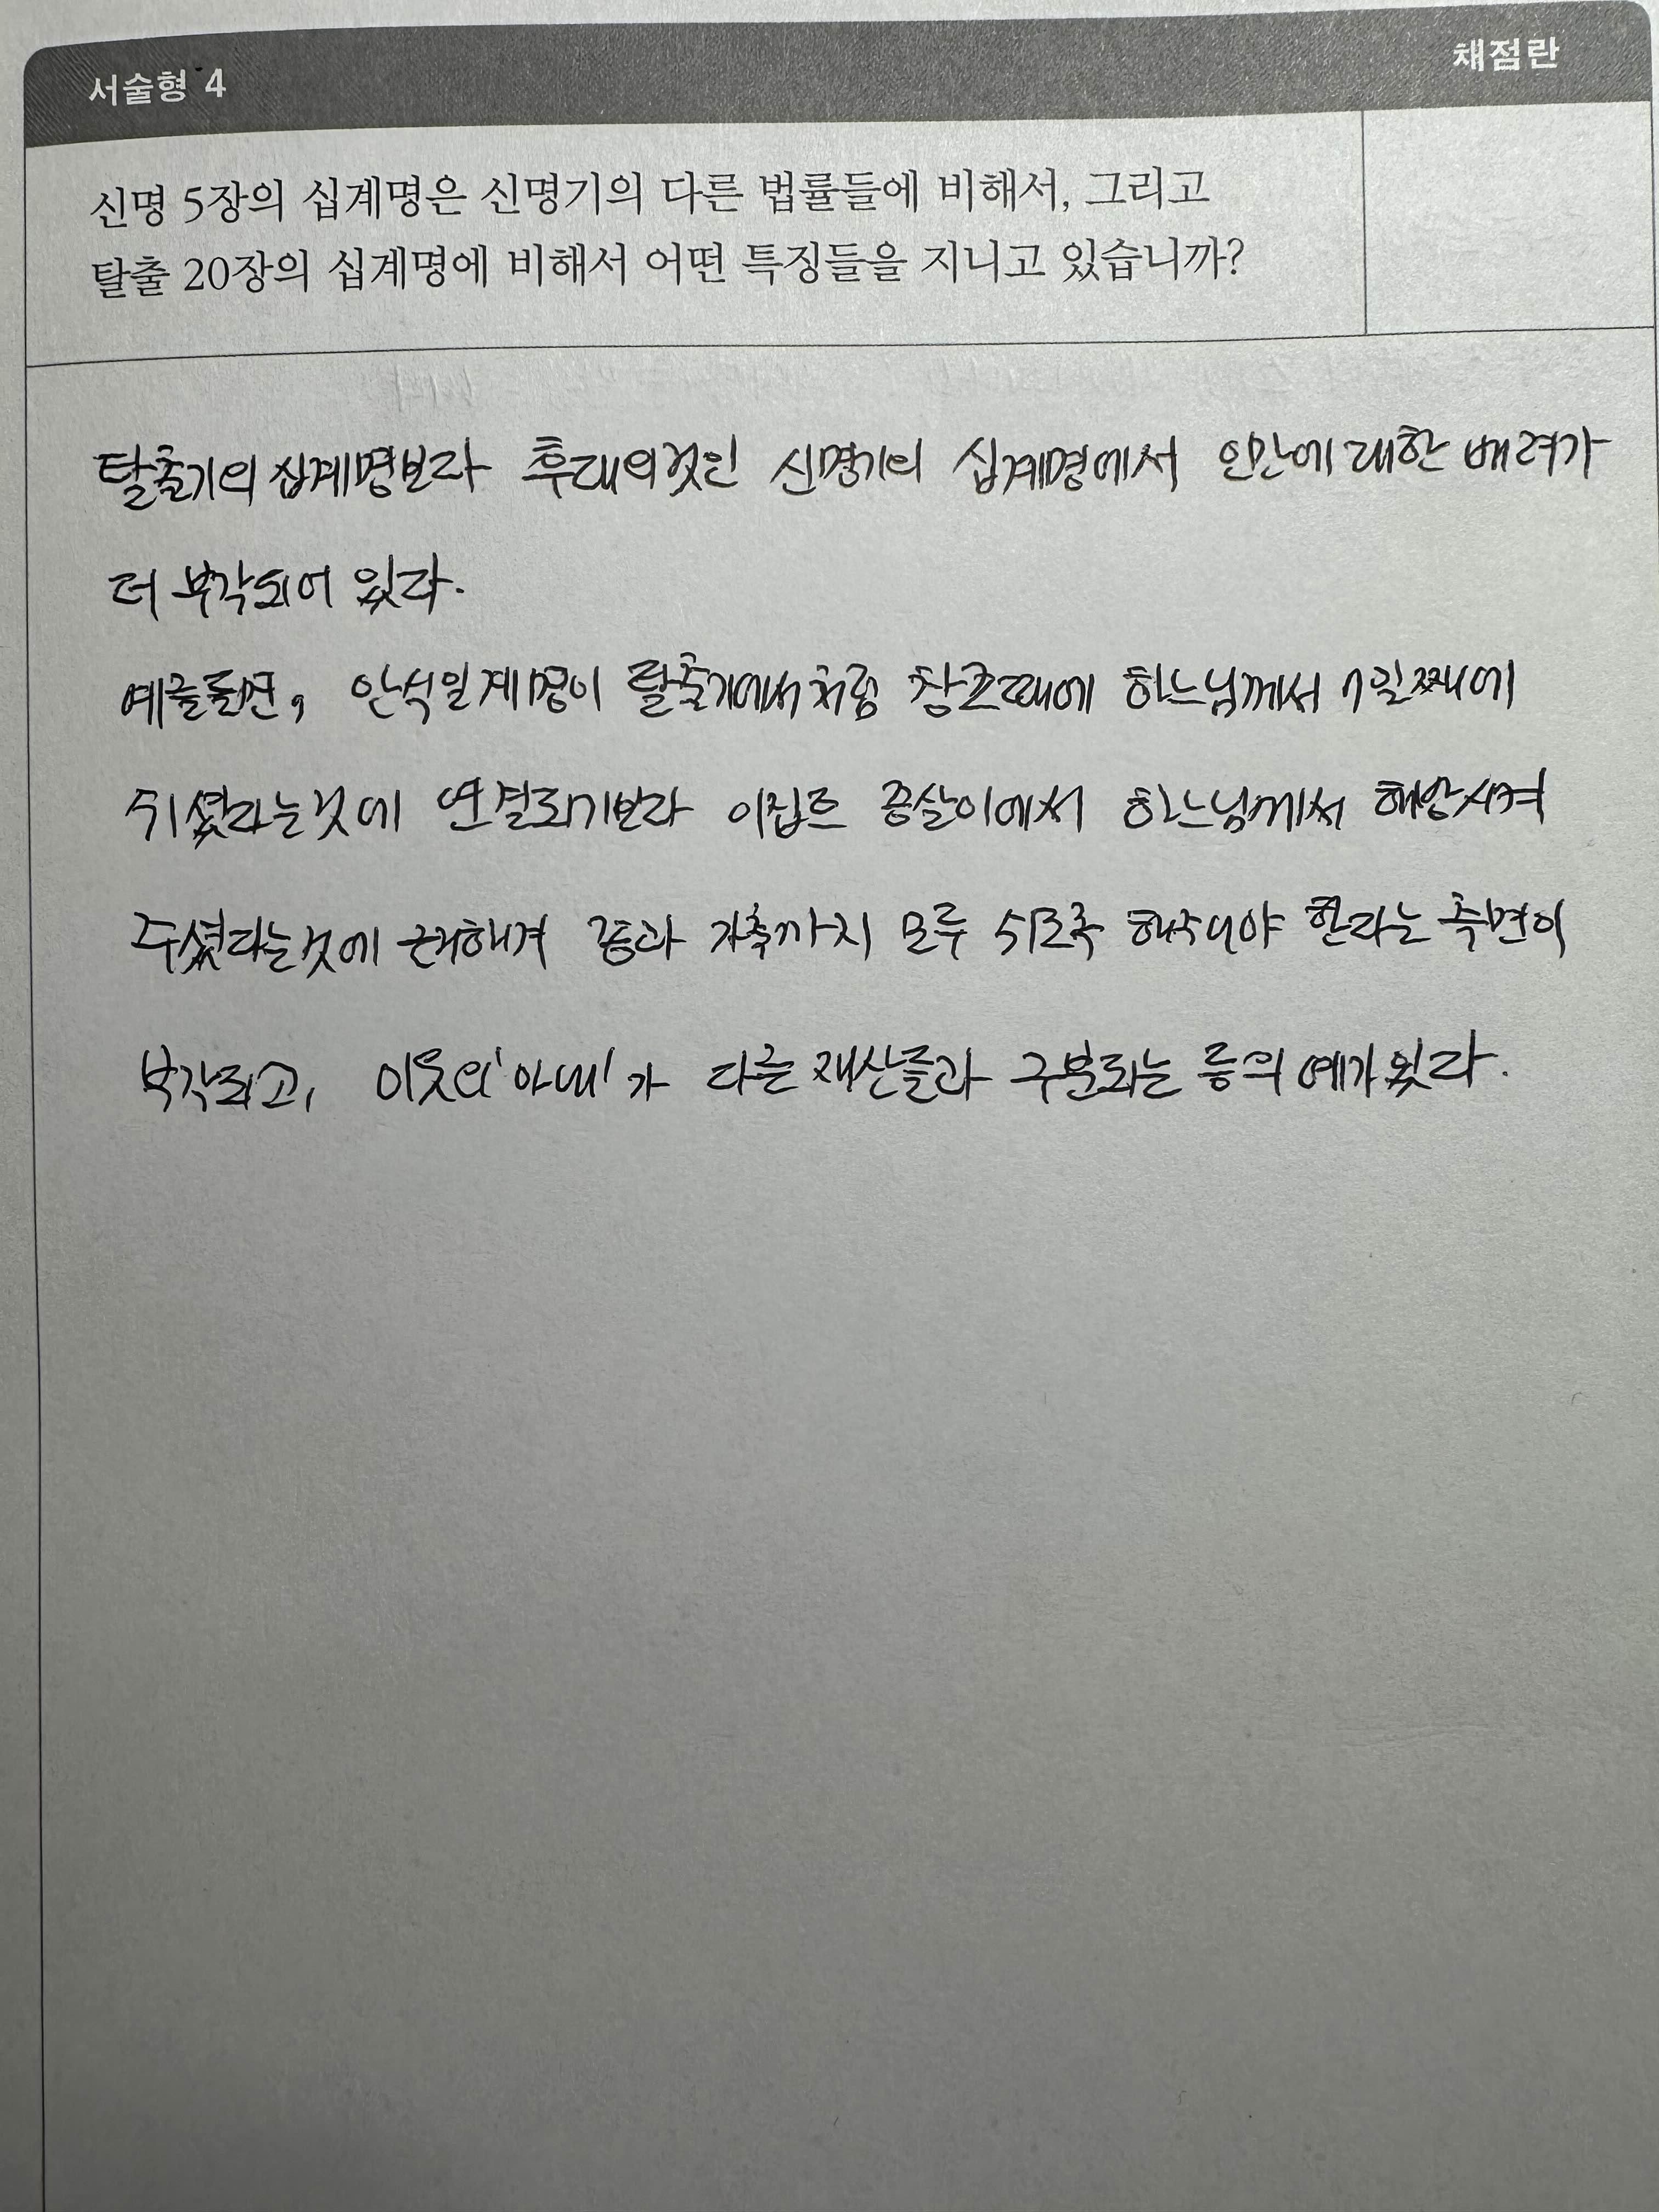 서술형 4
채점란
신명 5장의 십계명은 신명기의 다른 법률들에 비해서, 그리고
탈출 20장의 십계명에 비해서 어떤 특징들을 지니고 있습니까?
탈출기의 십계명보다 후대의것인 신명기의 십계명에서 인간에 대한 배려가
더 부각되어 있다.
예를들면, 안식일계명이 탈출기에서처럼 창조때에 하느님께서 7일째에
쉬셨다는것에 연결되기보다 이집트 종살이에서 하느님께서 해방시켜
주셨다는것에 근거해서 종과 가축까지 모두 쉬도록 해주어야 한다는 측면이
부각되고, 이웃의 '아내'가 다른 재산들과 구분되는 등의 예가 있다.